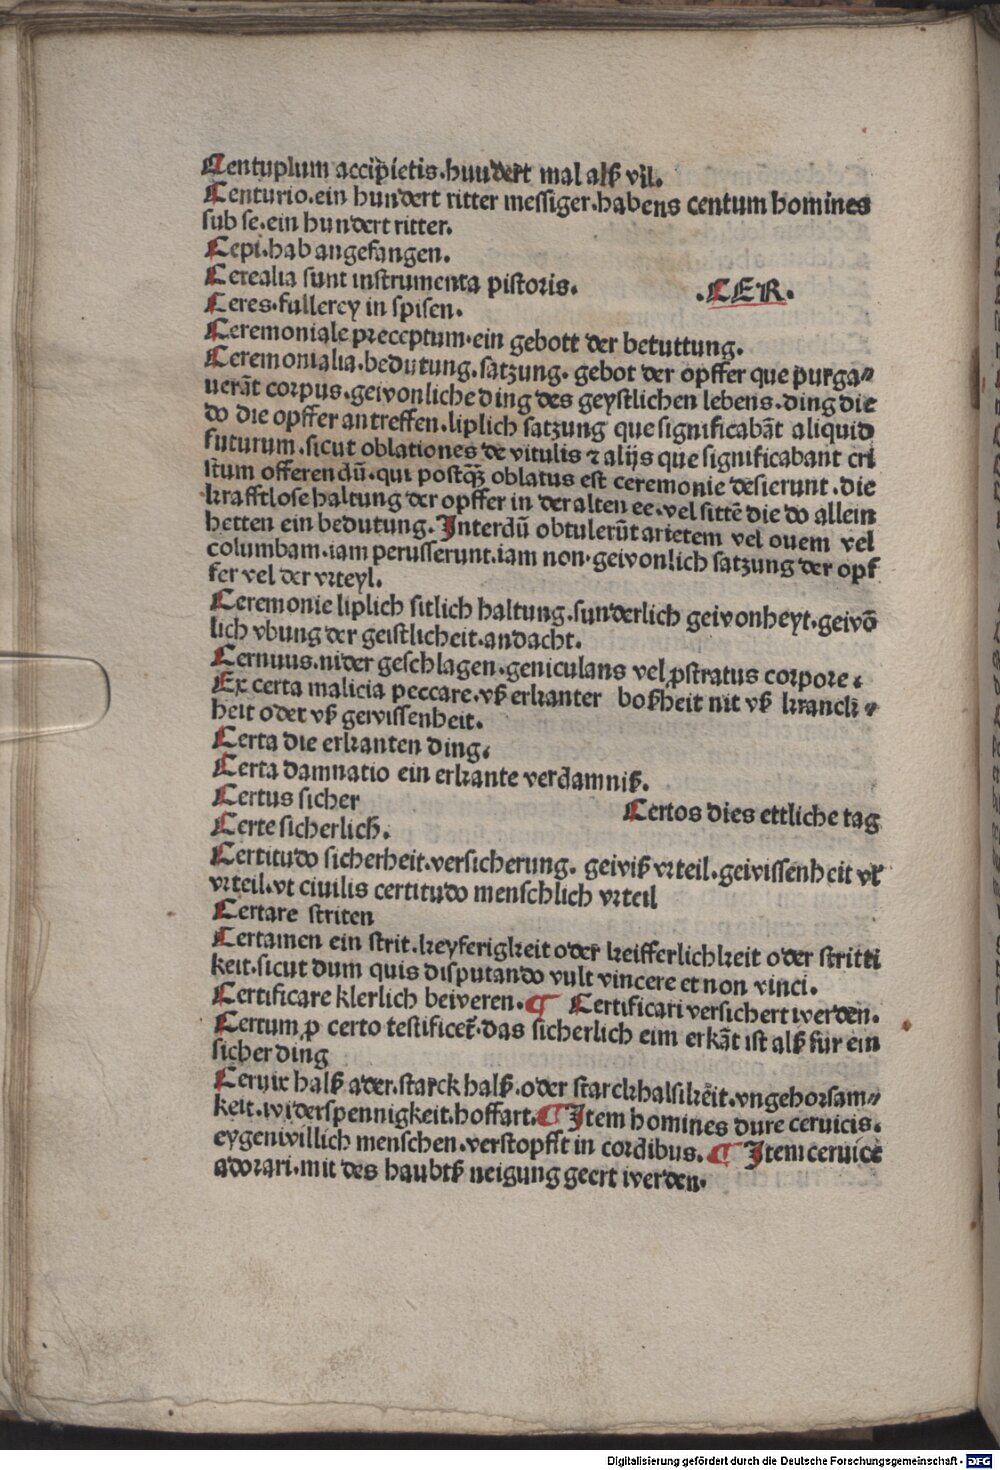 Centuplum accipietis.hundert mal alß vil.
Centurio.ein hundert ritter messiger.habens centum homines
sub se.ein hundert ritter.
Cepi.hab angefangen.
Cerealia sunt instrumenta pistoris.
.CER.
Ceres.fullerey in spisen.
Ceremoniale preceptum.ein gebott der betuttung.
Ceremonialia.bedutung.satzung. gebot der opffer que purga⸗
uerāt corpus.gewonliche ding des geystlichen lebens.ding die
do die opffer antreffen.liplich satzung que significabāt aliquid
futurum.sicut oblationes de vitulis ⁊ alijs que significabant cri
stum offerendū.qui postqꝫ oblatus est ceremonie desierunt.die
krafftlose haltung der opffer in der alten ee.vel sittē die do allein
hetten ein bedutung.Interdū obtulerūt arietem vel ouem vel
columbam.iam perusserunt.iam non.gewonlich satzung der opf
fer vel der vrteyl.
Ceremonie liplich sitlich haltung.sunderlich gewonheyt.gewō
lich vbung der geistlicheit.andacht.
Cernuus.nider geschlagen.geniculans vel ꝓstratus corpore.
Ex certa malicia peccare.vß erkanter boßheit nit vß kranck⸗
heit oder vß gewissenheit.
Certa die erkanten ding.
Certa damnatio ein erkante verdamniß.
Certus sicher
Certos dies ettliche tag
Certe sicherlich.
Certitudo sicherheit.versicherung. gewiß vrteil.gewissenheit vß
vrteil.vt ciuilis certitudo menschlich vrteil
Certare striten
Certamen ein strit.keyferigkeit oder keifferlichkeit oder stritti
keit.sicut dum quis disputando vult vincere et non vinci.
Certificare klerlich beweren.¶ Certificari versichert werden.
Certum ꝓ certo testificet̄.das sicherlich eim erkāt ist alß fur ein
sicher ding
Ceruix halß ader.starck halß.oder starckhalsikeit.vngehorsam⸗
keit.widerspennigkeit.hoffart.¶ Item homines dure ceruicis.
eygenwillich menschen.verstopfft in cordibus.¶ Item ceruice
adorari.mit des haubtß neigung geert werden.
Digitalisierung gefördert durch die Deutsche Forschungsgemeinschaft - DFG